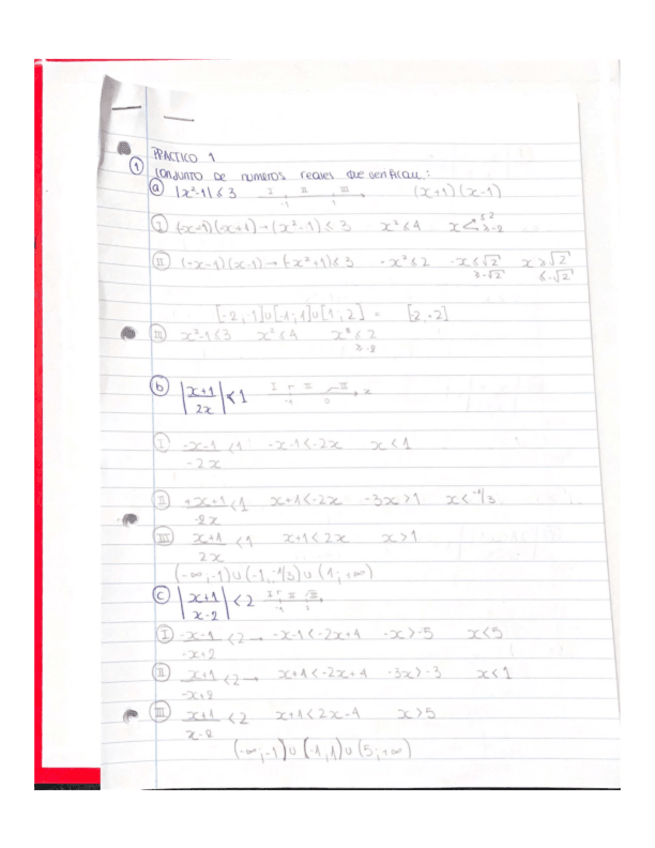 PRACTICO 1
① CONJUNTO DE NUMEROS reales que verifican:
ⓐ |x²-1| ≤ 3 I II III -1 1 (x+1)(x-1)
Ⓘ (-x-1)(-x+1) → (x²-1) ≤ 3 x² ≤ 4 x ≤ 2 ≥ -2
Ⓘ Ⓘ (-x-1)(x-1) → (-x²+1) ≤ 3 -x² ≤ 2 -x ≤ √2 ≥ -√2 x ≥ √2 ≤ -√2
[-2,-1]∪[-1;1]∪[1,2] = [-2,2]
III x²-1 ≤ 3 x² ≤ 4 x² ≤ 2 ≥ -2
ⓑ |x+1 / 2x| < 1 I II III -1 0 x
I -x-1 / -2x < 1 -x-1 < -2x x < 1
II +x+1 / -2x < 1 x+1 < -2x -3x > 1 x < -1/3
III x+1 / 2x < 1 x+1 < 2x x > 1
(-∞,-1)∪(-1,-1/3)∪(1;+∞)
ⓒ |x+1 / x-2| < 2 I II III -1
I -x-1 / -x+2 < 2 → -x-1 < -2x+4 -x > -5 x < 5
II x+1 / -x+2 < 2 → x+1 < -2x+4 -3x > -3 x < 1
III x+1 / x-2 < 2 x+1 < 2x-4 x > 5
(-∞;-1)∪(-1,1)∪(5;+∞)